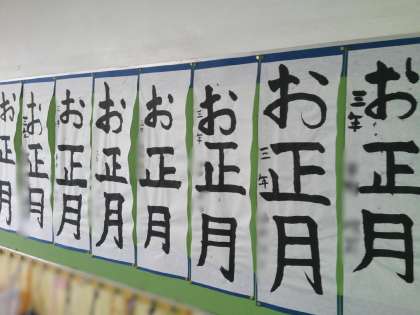 お正月
お正月
三年
お正月
お正月
お正月
お正月
三年
お正月
三年
お正月
三年